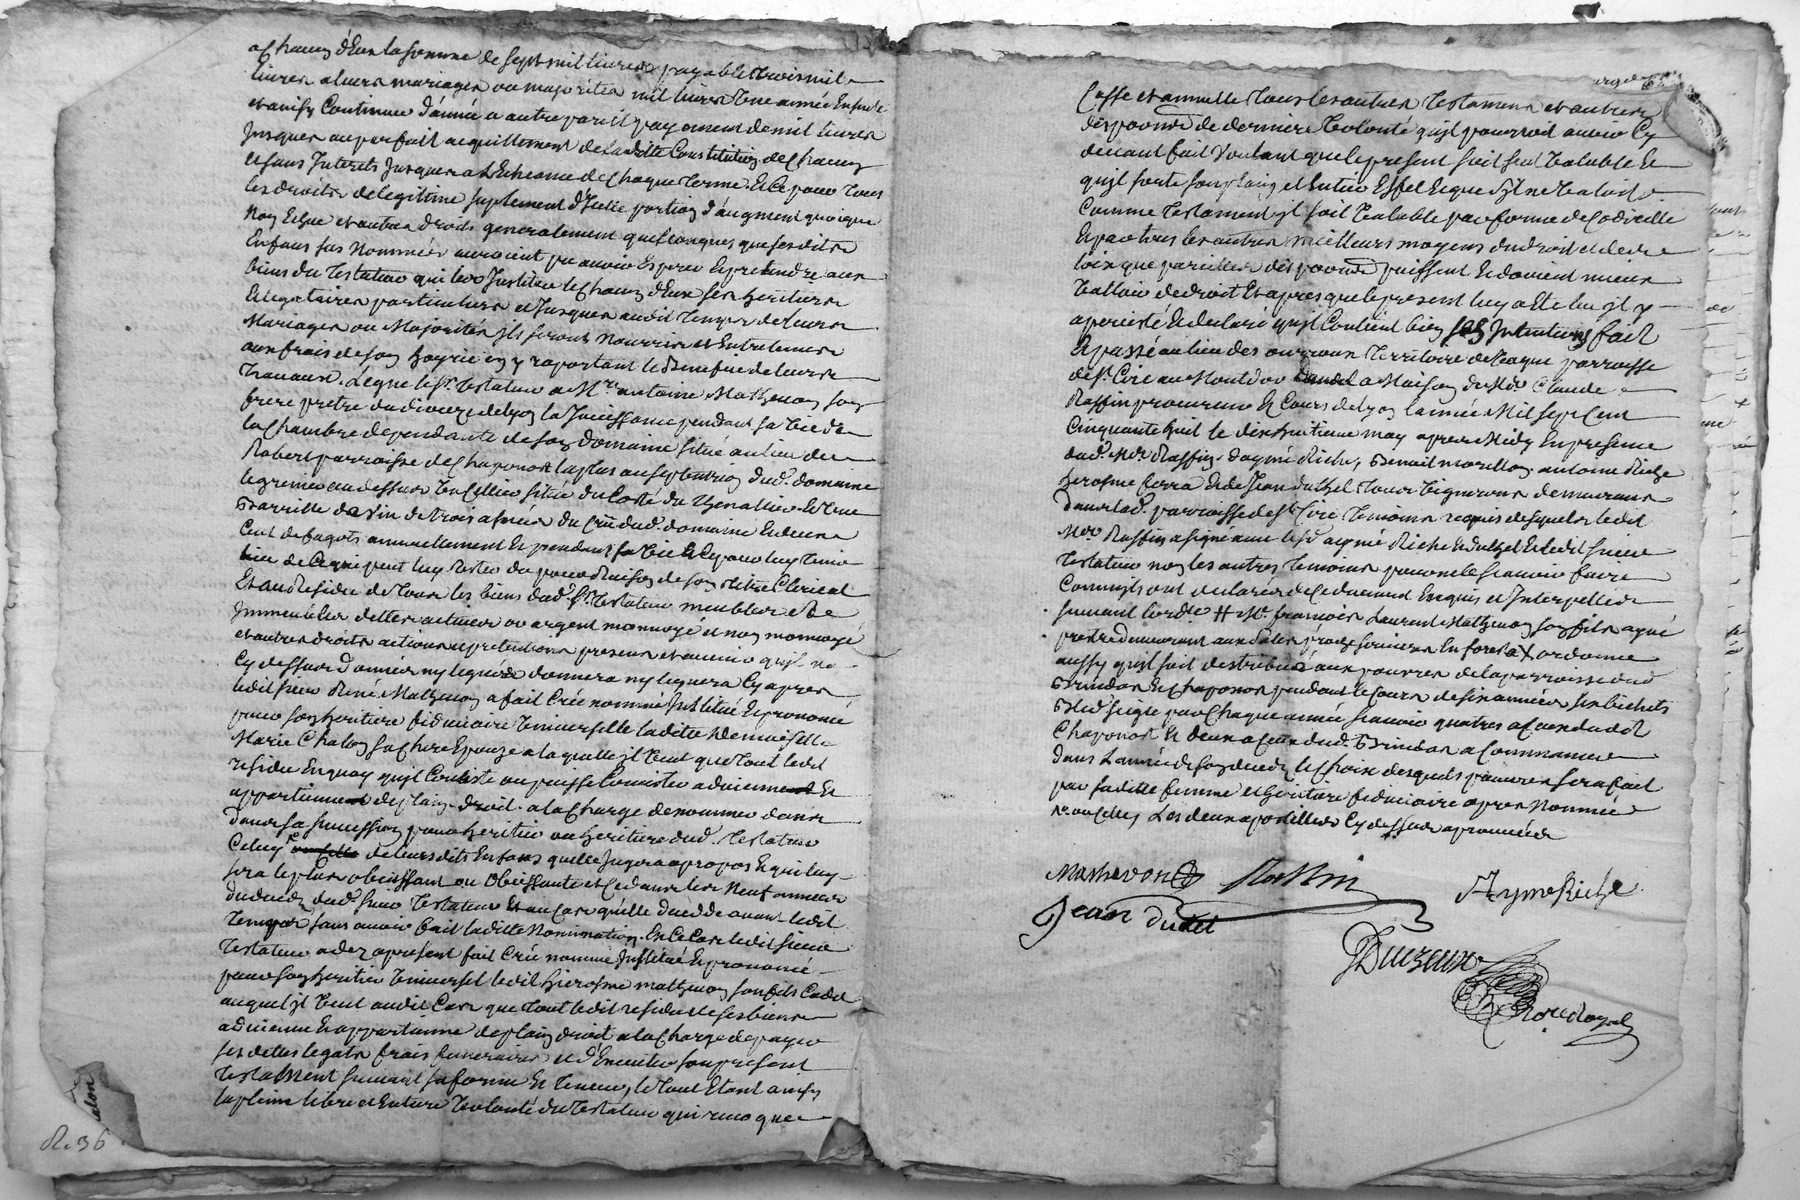 a chacun d'Eux la somme de sept mil livres payable trois mil
livres a leurs mariages ou majorités mil livres une année Ensuite
et ainsy Continuer d'année a autre pareil payement de mil livres
Jusques au parfait acquittement de ladite Constitution de chacun
et sans Interets Jusques a L'Echeance de chaque terme Et Ce pour tous
les droits de legitime suplement d'Icelle portion d'augment quoique
non Echue et autres droits generalement quelconques que sesdits
Enfans sus nommés auroient pu avoir Esperer et pretendre aux
biens du Testateur qui les Institue et chacun d'Eux ses heritiers
Et legataires particuliers et Jusques audit temps de leurs
Mariages ou Majorités ils seront nourris et Entretenus
aux frais de son hoyrie en y raportant le Benefice de leurs
travaux. Legue led. Sr. Testateur a Mre. antoine Mathevon son
frere pretre du dioceze de Lyon la Jouissance pendant sa vie de
la chambre dependante de son domaine situé au lieu de
Robert parroisse de chaponost la plus au septentrion dud. domaine
le grenier au dessus un Cellier situé du Costé du et une
Barrille de vin de trois asnées du Crû dud. domaine et deux
Cent de fagots annuellement Et pendant sa vie Et Ce pour luy tenir
lieu de Ce qui peut luy rester du pour Raison de son titre Clerical
Et au Residu de tous les biens dud. Sr. Testateur meubles et
Immeubles dettes actives or argent monnoyé et non monnoyé
et autres droits actions et pretentions presens et avenir qu'il na
Cy dessus donnés ny legués donnera ny leguera Cy apres
ledit sieur René Mathevon a fait Créé nommé Institué Et prononcé
pour son heritiere fiduciaire universelle ladite Demoiselle
Marie Chalon sa chere Epouze a laquelle il veut que tout ledit
residu En quoy qu'il Consiste ou puisse Consister advienne Et
appartienne de plain droit a la Charge de nommer dans
dans sa succession pour heritier ou heritiere dud. Testateur
Celuy de leursdits Enfans quelle Jugera a propos Et qui luy
sera le plus obeissant ou obeissante et Ce dans les neuf années
du deced dud. sieur Testateur Et au Cas qu'elle decedde avant ledit
temps sans avoir fait ladite Nomination En Ce Cas ledit sieur
Testateur a dez a present fait Créé nommé Institué Et prononcé
pour son heritier universel ledit hierosme mathevon son fils Cadet
auquel il veut audit Cas que tout ledit residu de ses biens
advienne Et appartienne de plain droit a la Charge de payer
ses dettes legats frais funeraires et d'Executer son present
Testament suivant sa forme Et teneur, le tout Etant ainsy
la pleine libre et Entiere volonté du Testateur qui revoque
Casse et annulle tous les autres Testamens et autres
dispoons. de derniere volonté qu'il pourroit avoir Cy
devant fait voulant que le present soit seul valable Et
qu'il sorte son plain et Entier Effet Et que s'il ne valoit
Comme Testament il soit valable par forme de Codicille
Et par tous les autres meilleurs moyens du droit et des
loix que pareilles dispoons. puissent Et doivent mieux
valloir de droit Et apres que le present luy a Eté lu il y
a persisté Et declaré qu'il Contient bien ses Intentions fait
Et passé au lieu des Territoire de parroisse
de St. Cire au Montdor a Maison de Mtre. Claude
Raffin procureur Es Cours de Lyon lannée Mil sept Cent
Cinquante huit le dix huitieme may apres Midy En presence
dud. Mtre. Raffin, d'aymé Riche, Benoit morillon, antoine Riche
hierosme ferra Et de Jean dutzel tous vignerons demeurans
dans lad. parroisse de St. Cire temoins requis desquels ledit
Mtre. Raffin a signé avec led. Sr. aymé Riche Et dutzel Et ledit sieur
Testateur non les autres temoins pour ne le scavoir faire
Comm'ils ont declarés de Ce duement Enquis et Interpellés
suivant lordce. # Mre. françois Laurent Mathevon son fils ayné
pretre demeurant aux En forest X ordonne
aussy qu'il soit distribué aux pauvres de la parroisse dud.
Brindas Et chaponost pendant le Cours de six années six bichets
Bled seigle par Chaque année scavoir quatres a Ceux dudit
Chaponost Et deux a Ceux dud. Brindas a Commancer
dans L'année de son deced, le choix desquels pauvres sera fait
par sadite femme et heritiere fiduciaire apres nommée
ou celle, Les deux apostilles Cy dessus approuvées
Mathevon Raffin Ayme Riche
Jean dutzel